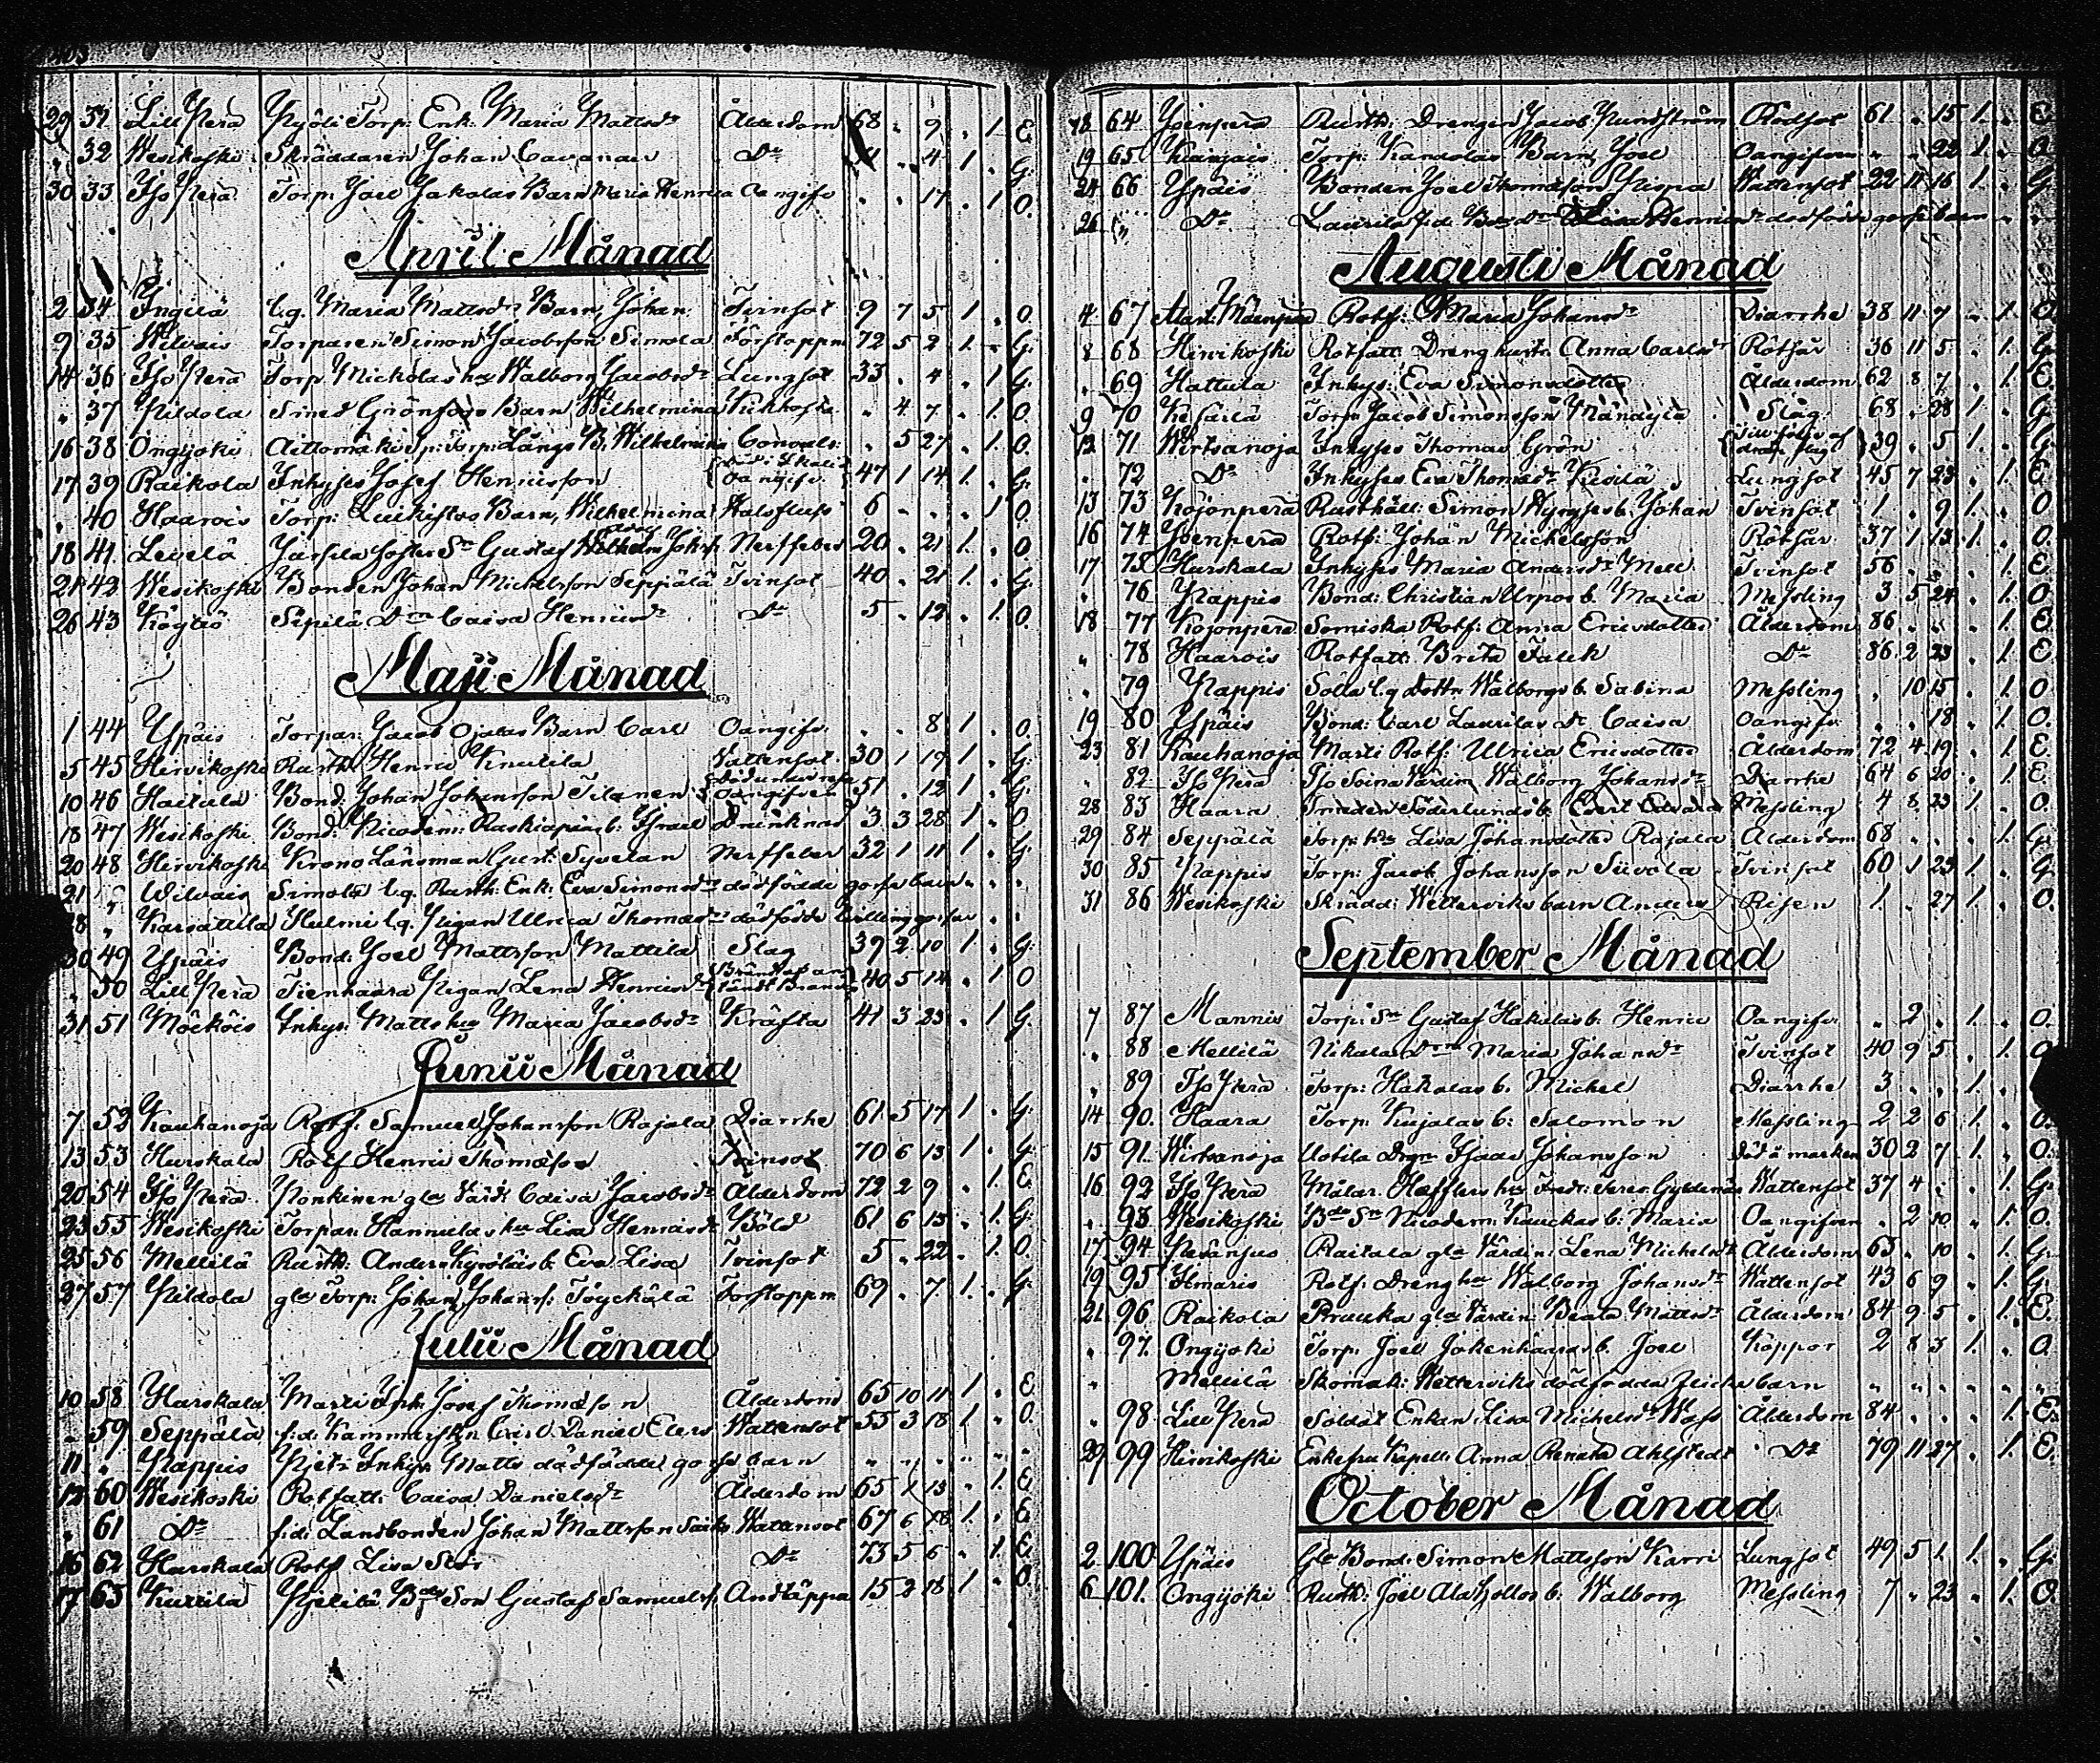 29 31 Lill Perä Pyöli Torp: Enk: Maria Mattsdr Ålderdom 68 " 9 " 1 E.
" 32 Wesikoski Skräddaren Johan Cavander Do " 4 1 " G.
30 33 Iso Perä Torp: Joel Jakolas Barn Maria Henrica Oangifv " " 17 " 1 O.
April Månad
2 34 Ingilä l.q. Maria Mattsdr Barn Johan Tvinsot 9 7 5 1 " O.
9 35 Wilvais Torparen Simon Jacobsson Simola Förstoppn 72 5 2 1 " G.
14 36 Iso Perä Torp. Mickolas hu Walborg Jacobsdr Lungsot 33 " 4 " 1 G.
" 37 Pildola Smed Grönfors Barn Wilhelmina Kikhosta " 4 7 " 1 O.
16 38 Ongijoki Aittomäki Sp: Torp: Långs B. Wilhelmina Convuls: " 5 27 " 1. O.
17 39 Raikola Inhyses Josef Henricsson Oangifv. 47 1 14 1. " G.
" 40 Haarois Torp: Barn, Wilhelmina Halsfluss 6 " " " 1 O.
18 41. Levelä Sn Gustaf Adolf Johsf. Nerffeber 20 " 21 1. " O.
21 42 Wesikoski Bonden Johan Michelsson Seppälä Tvinsot 40 " 21 1. " G.
26 43 Köyliö Sipilä Drn Caisa Henricsdr Do 5 " 12 " 1. O.
Maji Månad
1 44 Ypäis Torpar: Jacob Ojalas Barn Carl Oangifv. " " 8 1 " O.
5 45 Hirvikoski Rusth: Henric Knutila Vattensot. 30 1 19 1. " G.
10 46 Haitula Bond: Johan Johansson Tilanen Oangifven 51 " 12 1 " G.
18 47 Wesikoski Bond: Nicodem: b: Israel Drunknad 3 3 28 1. " O
20 48 Hirvikoski Krono Länsman Gust: Syvelan Nerffeber 32 1 11 1. " G.
21 " Wilvais Simola l.q. Rusth: Enk: Eva Simonsdr dödfödde gosse barn " " "
28 " Karsattila Helmi l.q. Pigan Ulrica Thomasdr dödfödde tvilling gossar " "
30 49 Ypäis Bond: Joel Mattsson Mattila Slag 39 2 10 1. " G.
" 50 Lill Perä Tienhaara Pigan Lena Henricsdr 40 5 14 " 1 O
31 51 Mäckois Inhys: Matts hu Maria Jacobsdr Kräfta 41 3 23 " 1 G.
Junii Månad
7 52 Kauhanoja Rotf. Samuel Johansson Rajala Diarrhe 61 5 17 1 " G.
13 53 Hurskala Rotf Henric Thomasson Tvinsot 70 6 13 1 " G.
20 54 Iso Perä Ponkinen gla Värdi: Caisa Jacobsdr Ålderdom 72 2 9 " 1. E.
23 55 Wesikoski Torpar: Hannulas hu Lisa Henricsdr Böld 61 6 13 " 1. G.
25 56 Mellilä Rusth: Anders Kyröläis b. Eva Lisa Tvinsot 5 " 22 " 1. O.
27 57 Pildola gle Torp: Johan Johansf. Töyckälä Förstoppn 69 " 7 1. " G.
Julii Månad
10 58 Hurskala Marti Inh: Josef Thomasson Ålderdom 65 10 11 1. " E.
" 59 Seppälä f.d. Kammarskr. Carl Daniel Elers Wattensot 55 3 18 1 " O.
11 " Pappis Piets Inhys: Matts dödfödde gosse barn " " " " " "
12 60 Wesikoski Rotfatt: Caisa Danielsdr Ålderdom 65 1 13 " 1. E
" 61 Do f.d. Landbonden Johan Mattsson Wattensot 67 6 18 1. " E
16 62 Hurskala Rotf Lisa Do 73 5 6 " 1. E.
17 63 Kurilä Bde Son Gustaf Samuelsf. Andtäppa 15 2 18 1 " O.
18 64 Yoenperä Rusth: Drengen Jacob Rödsot 61 " 15 1. " E.
19 65 Torp: Kandolas Barn Joel Oangifven " " 22 1. " O
24 66 Ypäis Bonden Joel Thomasson Wattensot 22 11 16 1. " G.
26 " Do Laurila dödfödde gosse barn " "
Augusti Månad
4 67 Rotf: Maria Johansdr Diarrhe 38 11 7 " 1. O
8 68 Hirvikoski Rotfatt: Dreng hustr: Anna Carlsdr Rötfär 36 11 5 " 1. G.
" 69 Hattula Inhys: Eva Simonsdotter Ålderdom 62 8 7 " 1. E.
9 70 Torp: Jacob Simonsson Mänäylä Slag 68 " 28 1. " G
12 71 Wirtsanoja Inhyses Thomas Grön Till följe af 39 " 5 1. " G
" 72 Do Inhyses Eva Thomasdr Kisilä Lungsot 45 7 23 " 1. E
13 73 Kojonperä Rusthåll: Simon b: Johan Tvinsot 1 " 9 1. " O
16 74 Yoenperä Rotf: Johan Michelsson Rötfär 37 1 13 1. " O.
17 75 Hurskala Inhyses Maria Andersdr Mell Tvinsot 56 " " " 1. E.
" 76 Pappis Bond: Christian Urpos b. Maria Messling 3 5 24 " 1. O.
18 77 Kojonperä Semiska Rotf: Anna Ericsdotter Ålderdom 86 " " " 1. E.
" 78 Haarois Rotfatt: Brita Falck Do 86 2 23 " 1. E.
" 79 Pappis l.q. dottr. Walborgs b. Sabina Messling " 10 15 " 1. O
19 80 Ypäis Bond: Carl Laurilas Dr Caisa Oangifv: " " 18 " 1. O.
23 81 Kauhanoja Marti Rotf: Ulrica Ericsdotter Ålderdom 72 4 19 " 1. E.
" 82 Iso Perä Iso Soina Värdin: Walborg Johansdr Diarrhe 64 6 20 " 1. E.
28 83 Haara Smeden Söderlunds b. Edvard Messling 4 8 23 1. " O.
29 84 Seppälä Torp: hu Lisa Johansdotter Rajala Ålderdom 68 " " " 1. G.
30 85 Pappis Torp: Jacob Johansson Siivola Tvinsot 60 1 23 1. " G
31 86 Wesikoski Skrädd: Wetterviks barn Anders Risen 1 " 27 1. " O.
September Månad
7 87 Mannis Torp: Sn Gustaf Hakalas b. Henric Oangifv " 2 " 1. " O.
" 88 Mellilä Nikala Drn Maria Johansdr Tvinsot 40 9 5 " 1. O
" 89 Iso Perä Torp: Hakalas b. Michel Diarrhe 3 " " 1. "
14 90. Haara Torp: Kujalas b: Salomon Messling 2 2 6 1. " O.
15 91. Wirtsanoja Uotila Drgn Isaac Johansson Död å marken 30 2 7 1. " O.
16 92 Iso Perä Målar. Hæfflers hu Wattensot 37 4 " " 1. G.
" 93 Wesikoski Bde Sn Nicodem: Kauckas b: Maria Oangifven " 2 10 " 1. O.
17 94 Raitala gla Värdin: Lena Michelsdr Ålderdom 63 " 10 " 1. G.
19 95 Ymaris Rotf: Dreng hu Walborg Johansdr Wattensot 43 6 9 " 1. G.
21 96 Raikola Pruuka gla Värdin Beata Mattsdr Ålderdom 84 9 5 " 1. E.
" 97. Ongijoki Torp: Joel b. Joel Koppor 2 8 3 1. " O
" Mellilä Skomak: Wetterviks dödfödda flicke barn " " " " " "
" 98. Lill Perä Soldat Enkan Lisa Michelsdr Wass Ålderdom 84 " " " 1. E.
29 99 Hirvikoski Enkefru Kapell: Anna Renata Ahlstedt Do 79 11 27 " 1. E.
October Månad
2 100 Ypäis Gle Bond: Simon Mattsson Karri Lungsot 49 5 1. 1. " G.
6 101. Ongijoki Rusth: Joel b: Walborg Messling 7 " 23 " 1. O.